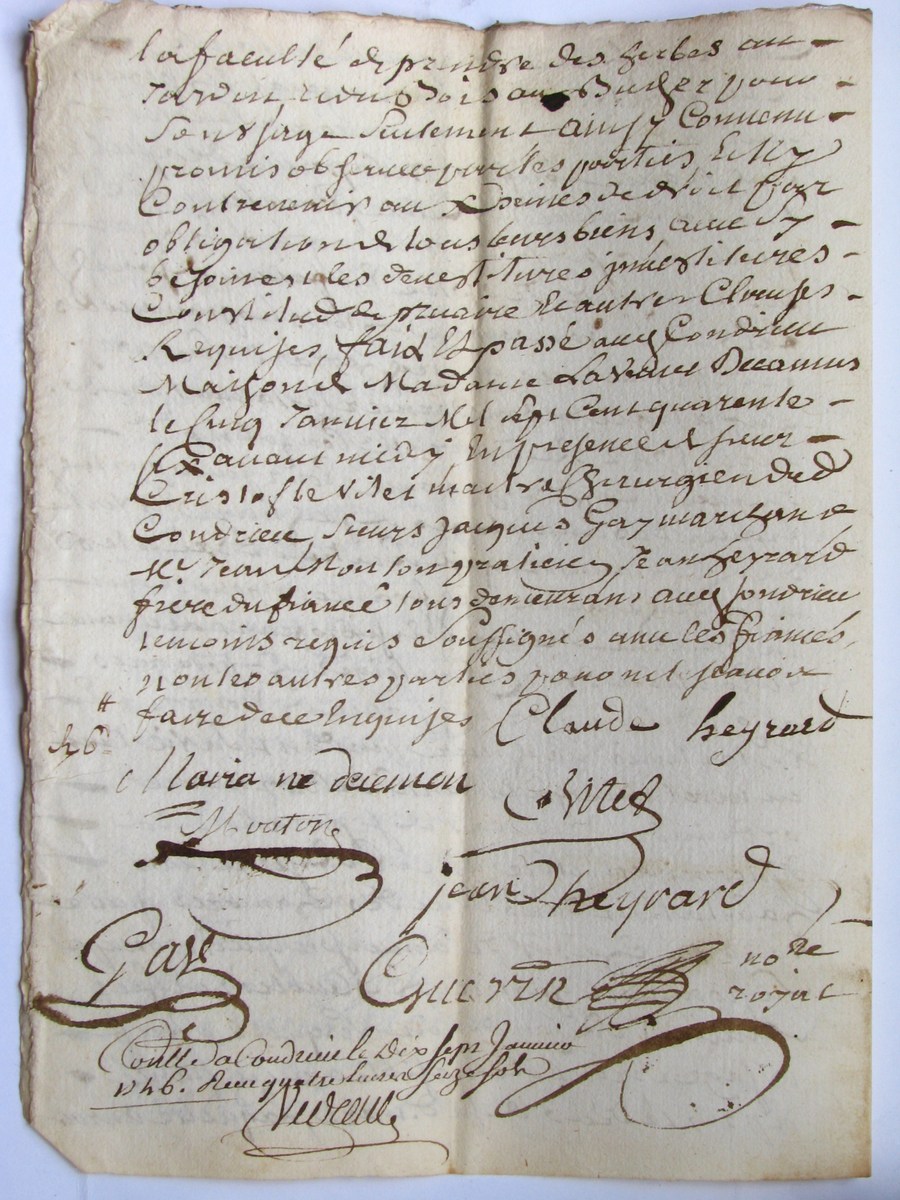 la faculté de prendre des herbes au
Jardin et du Bois au Bucher pour
son usage seulement ainsy Convenu
promis observer par les parties Et N'y
Contrevenir aux peines de droit par
obligation de tous leurs biens avec Sy
besoin est les devestitures jnvestitures
Constitud de precaire Et autres Clauses
Requises, fait Et passé audt Condrieu
Maison de Madame La Veuve Decamus
le Cinq Janvier Mil sept Cent quarente
six avant midy En presence de sieur
Cristofle Vitet maitre Chirurgien dudt
Condrieu, sieurs Jacques Gay marchand
Me Jean Mouton praticien Jean heyrard
frere du fiancé tous demeurans audt Condrieu
temoins requis e soussignés avec les fiancés
non les autres parties pour ne sçavoir
faire de ce Enquises
Claude heyrard
Maria ne decemon
Vitet
Mouton
jean heyrard
Gay
Guerin nore
royal
Contlle a Condrieu le Dix sept Janvier
1746. Receu quatre livres seize sols